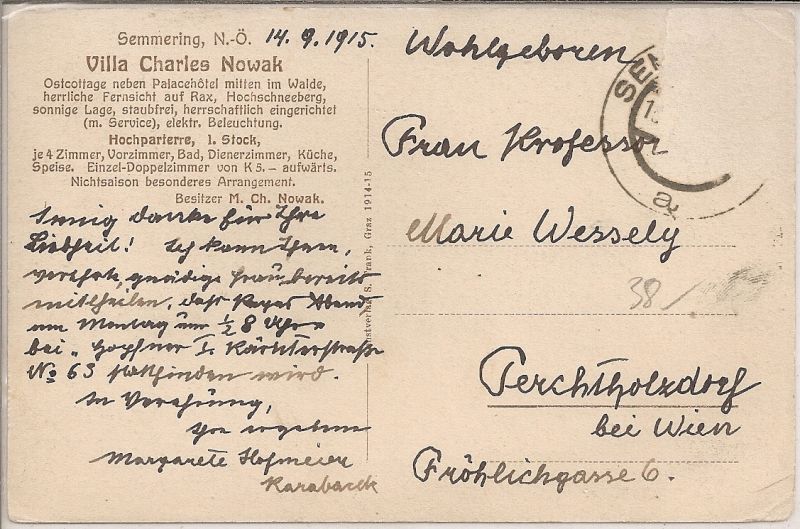 Semmering, N.-Ö. 14. 9. 1915.
Villa Charles Nowak
Ostcottage neben Palacehôtel mitten im Walde,
herrliche Fernsicht auf Rax, Hochschneeberg,
sonnige Lage, staubfrei, herrschaftlich eingerichtet
(m. Service), elektr. Beleuchtung.
Hochparterre, 1. Stock,
je 4 Zimmer, Vorzimmer, Bad, Dienerzimmer, Küche,
Speise. Einzel-Doppelzimmer von K 5.— aufwärts.
Nichtsaison besonderes Arrangement.
Besitzer M. Ch. Nowak.
Innig danke für Ihre
Liebheit! Ich kann Ihnen,
verehrte, gnädige Frau bereits
mittheilen, daß Abend
am Montag um ½ 8 Uhr
bei „Hopfner I. Kärntnerstraße
No 63 stattfinden wird.
In Verehrung,
Ihre ergebene
Margarete Hofmeier
Karabacek
Kunstverlag S. Frank, Graz 1914-15
Wohlgeboren
Frau Professor
Marie Wessely
38/
Perchtholzdorf
bei Wien
Fröhlichgasse 6.
SEM
a